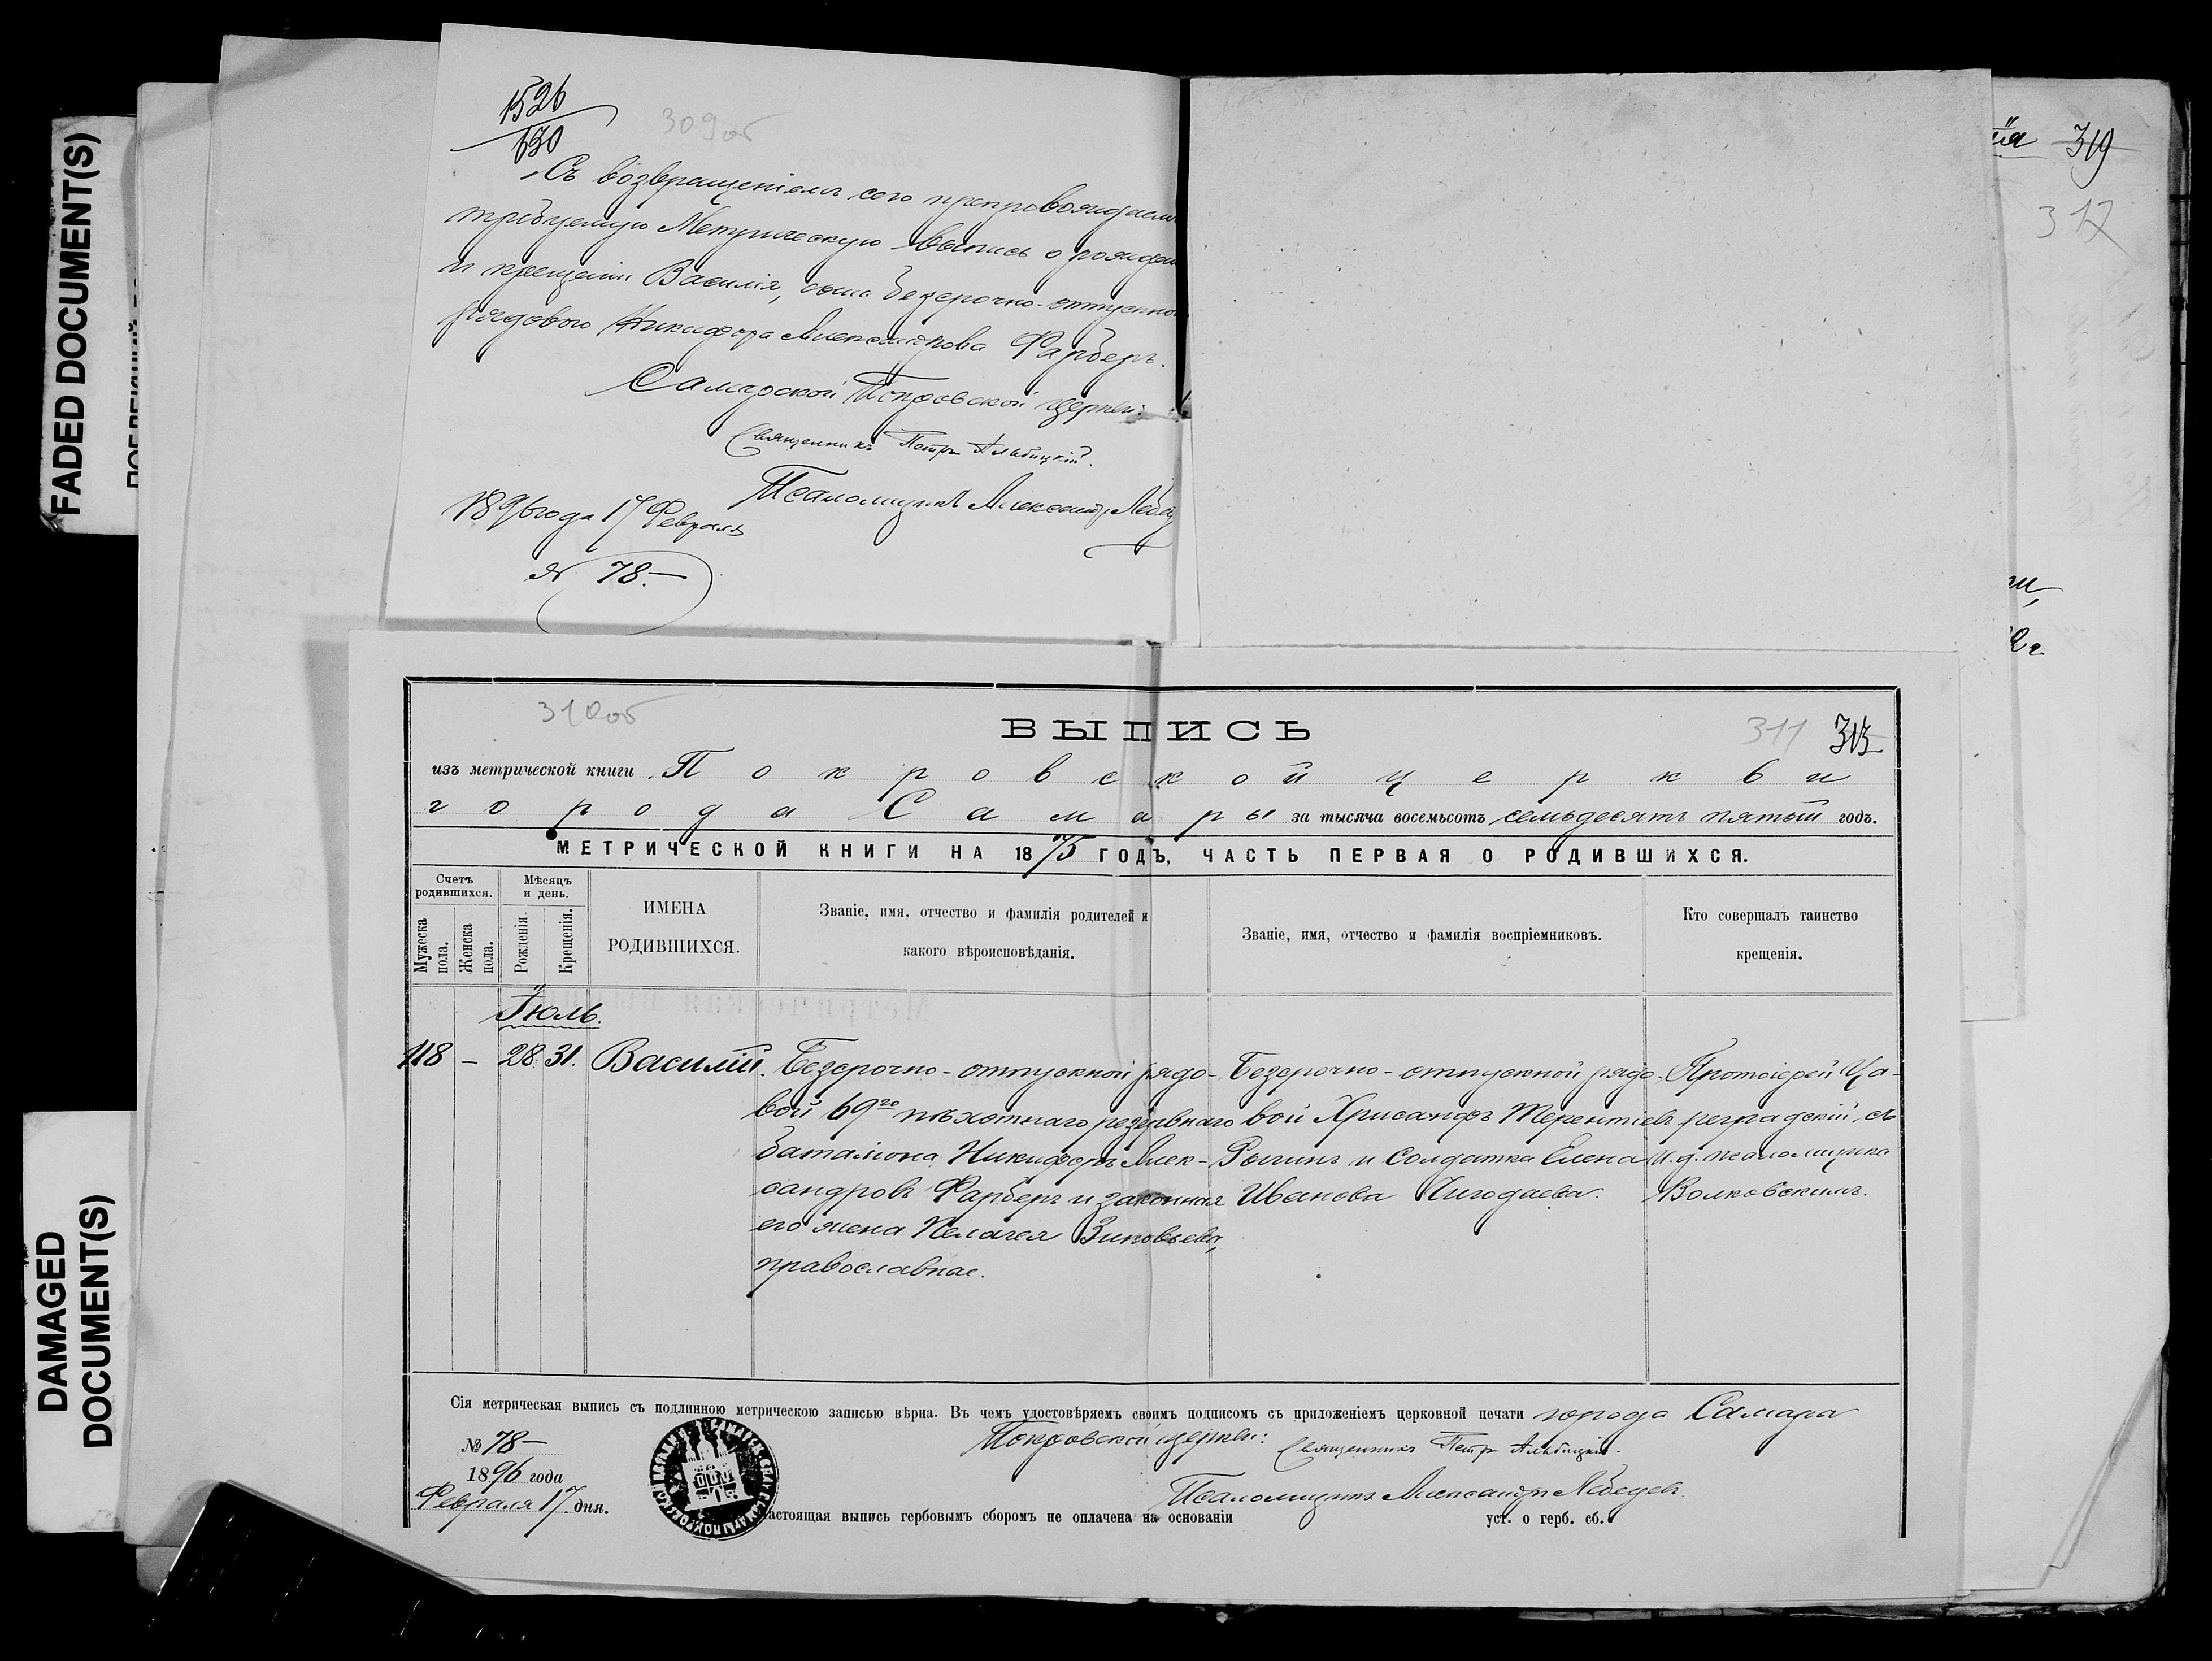 FADED DOCUMENT(S)
DAMAGED
DOCUMENT(S)
1526
630
309 об
Съ возвращеніемъ сего препровождаемъ
требуемую Метрическую выпись о рожден
и крещеніи Василія, сына безсрочно-отпускно
рядового Никифора Александрова Фарберъ.
Самарской Покровской церкви:
Священникъ Петръ Альбицкій.
Псаломщикъ Александръ Лебед
1896 года 17 Февраля
№ 78.—
ія 319
317
310 об
ВЫПИСЬ
311 313
изъ метрической книги Покровской церкви
города Самары за тысяча восемьсотъ семьдесятъ пятый годъ.
МЕТРИЧЕСКОЙ КНИГИ НА 1875 ГОДЪ, ЧАСТЬ ПЕРВАЯ О РОДИВШИХСЯ.
Счетъ родившихся.
Мужеска пола.
Женска пола.
Мѣсяцъ и день.
Рожденія.
Крещенія.
ИМЕНА
РОДИВШИХСЯ.
Званіе, имя, отчество и фамилія родителей и
какого вѣроисповѣданія.
Званіе, имя, отчество и фамилія воспріемниковъ.
Кто совершалъ таинство
крещенія.
Іюль.
118 — 28 31. Василій.
Безсрочно-отпускной рядо-
вой 69го пѣхотнаго резервнаго
баталіона Никифоръ Алек-
сандровъ Фарберъ и законная
его жена Пелагея Зиновьева,
православные.
Безсрочно-отпускной рядо-
вой Хрисанфъ Терентіевъ
и Солдатка Елена
Иванова Чигодаева.
Протоіерей Ца-
реградскій съ
и. д. псаломщика
Волковскимъ.
Сія метрическая выпись съ подлинною метрическою записью вѣрна. Въ чемъ удостовѣряемъ своимъ подписомъ съ приложеніемъ церковной печати города Самара
Покровской церкви: Священникъ Петръ Альбицкій.
№ 78—
1896 года
Февраля 17 дня.
Псаломщикъ Александръ Лебедевъ
Настоящая выпись гербовымъ сборомъ не оплачена на основаніи уст. о герб. сб.